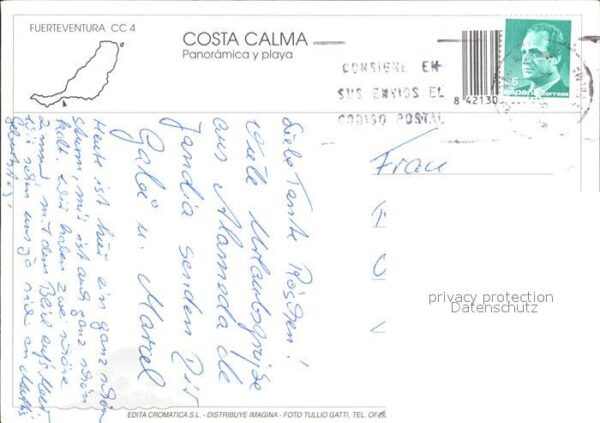 FUERTEVENTURA CC 4
COSTA CALMA
Panorámica y playa
CONSIGNE EN
SUS ENVIOS EL
CODIGO POSTAL
8 42130
España correos
Frau
Liebe Tante Röschen!
Viele Urlaubsgrüße
aus Alameda de
Jandia senden Dir
Gabi u. Marcel
Heute ist hier ein ganz schön
Sturm, mir ist auch ganz schön
kalt. Wir haben zwar schöne
Zimmer, mit dem Blick aufs Meer
wir sehen uns ja
privacy protection
Datenschutz
EDITA CROMATICA S.L. - DISTRIBUYE IMAGINA - FOTO TULLIO GATTI, TEL.